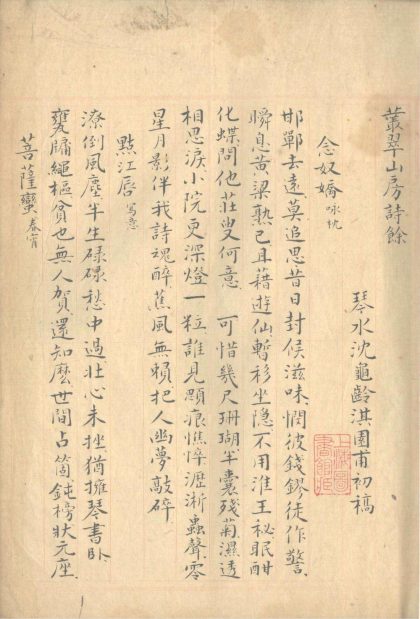 叢翠山房詩餘
琴水沈龜齡淇園甫初稿
念奴嬌 咏枕
邯鄲去遠莫追思昔日封侯滋味憫彼錢鏐徒作警
瞬息黃粱熟已且藉遊仙暫移坐隱不用淮王秘眠酣
化蝶問他莊叟何意 可惜幾尺珊瑚半囊殘菊濕透
相思淚小院更深燈一粒誰見顋痕憔悴瀝淅蟲聲零
星月影伴我詩魂醉蕉風無賴把人幽夢敲碎
點江唇 寫意
潦倒風塵半生碌碌愁中過壯心未挫猶擁琴書臥
甕牖繩樞貧也無人賀還知麼世間占箇鈍榜狀元座
菩薩蠻 春宵
上海圖書館藏